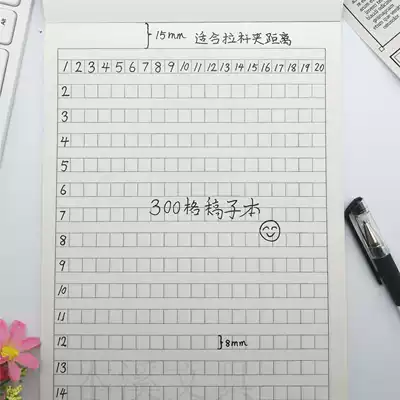 15mm 适合拉杆夹距离
1 2 3 4 5 6 7 8 9 10 11 12 13 14 15 16 17 18 19 20
2
3
4
5
6
7 300格稿子本
8
9
10
11
12 8mm
13
14